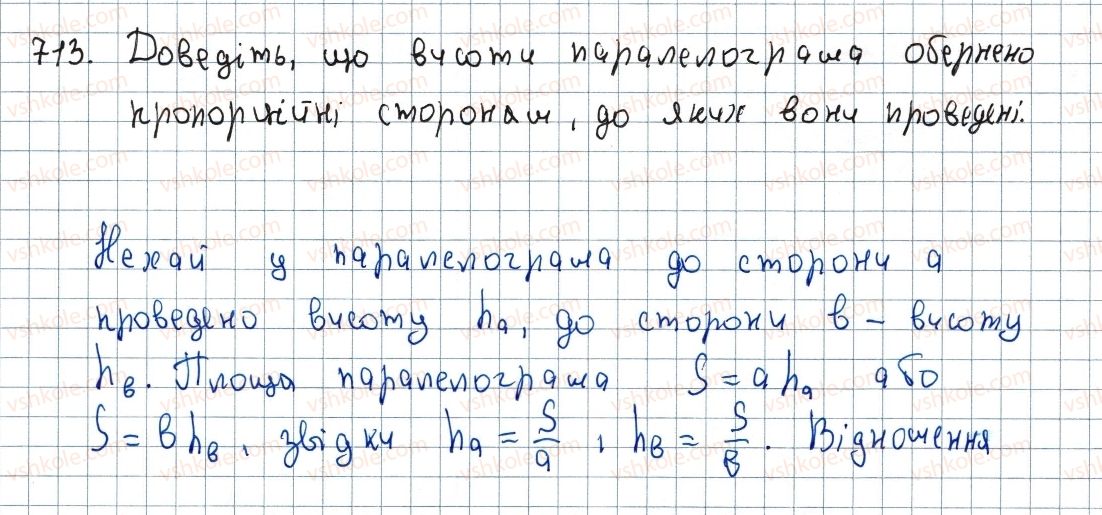 713. Доведіть, що висоти паралелограма обернено
пропорційні сторонам, до яких вони проведені.
Нехай у паралелограма до сторони a
проведено висоту hₐ, до сторони в – висоту
h_в. Площа паралелограма S = a hₐ або
S = в h_в, звідки hₐ = S/a, h_в = S/в. Відношення